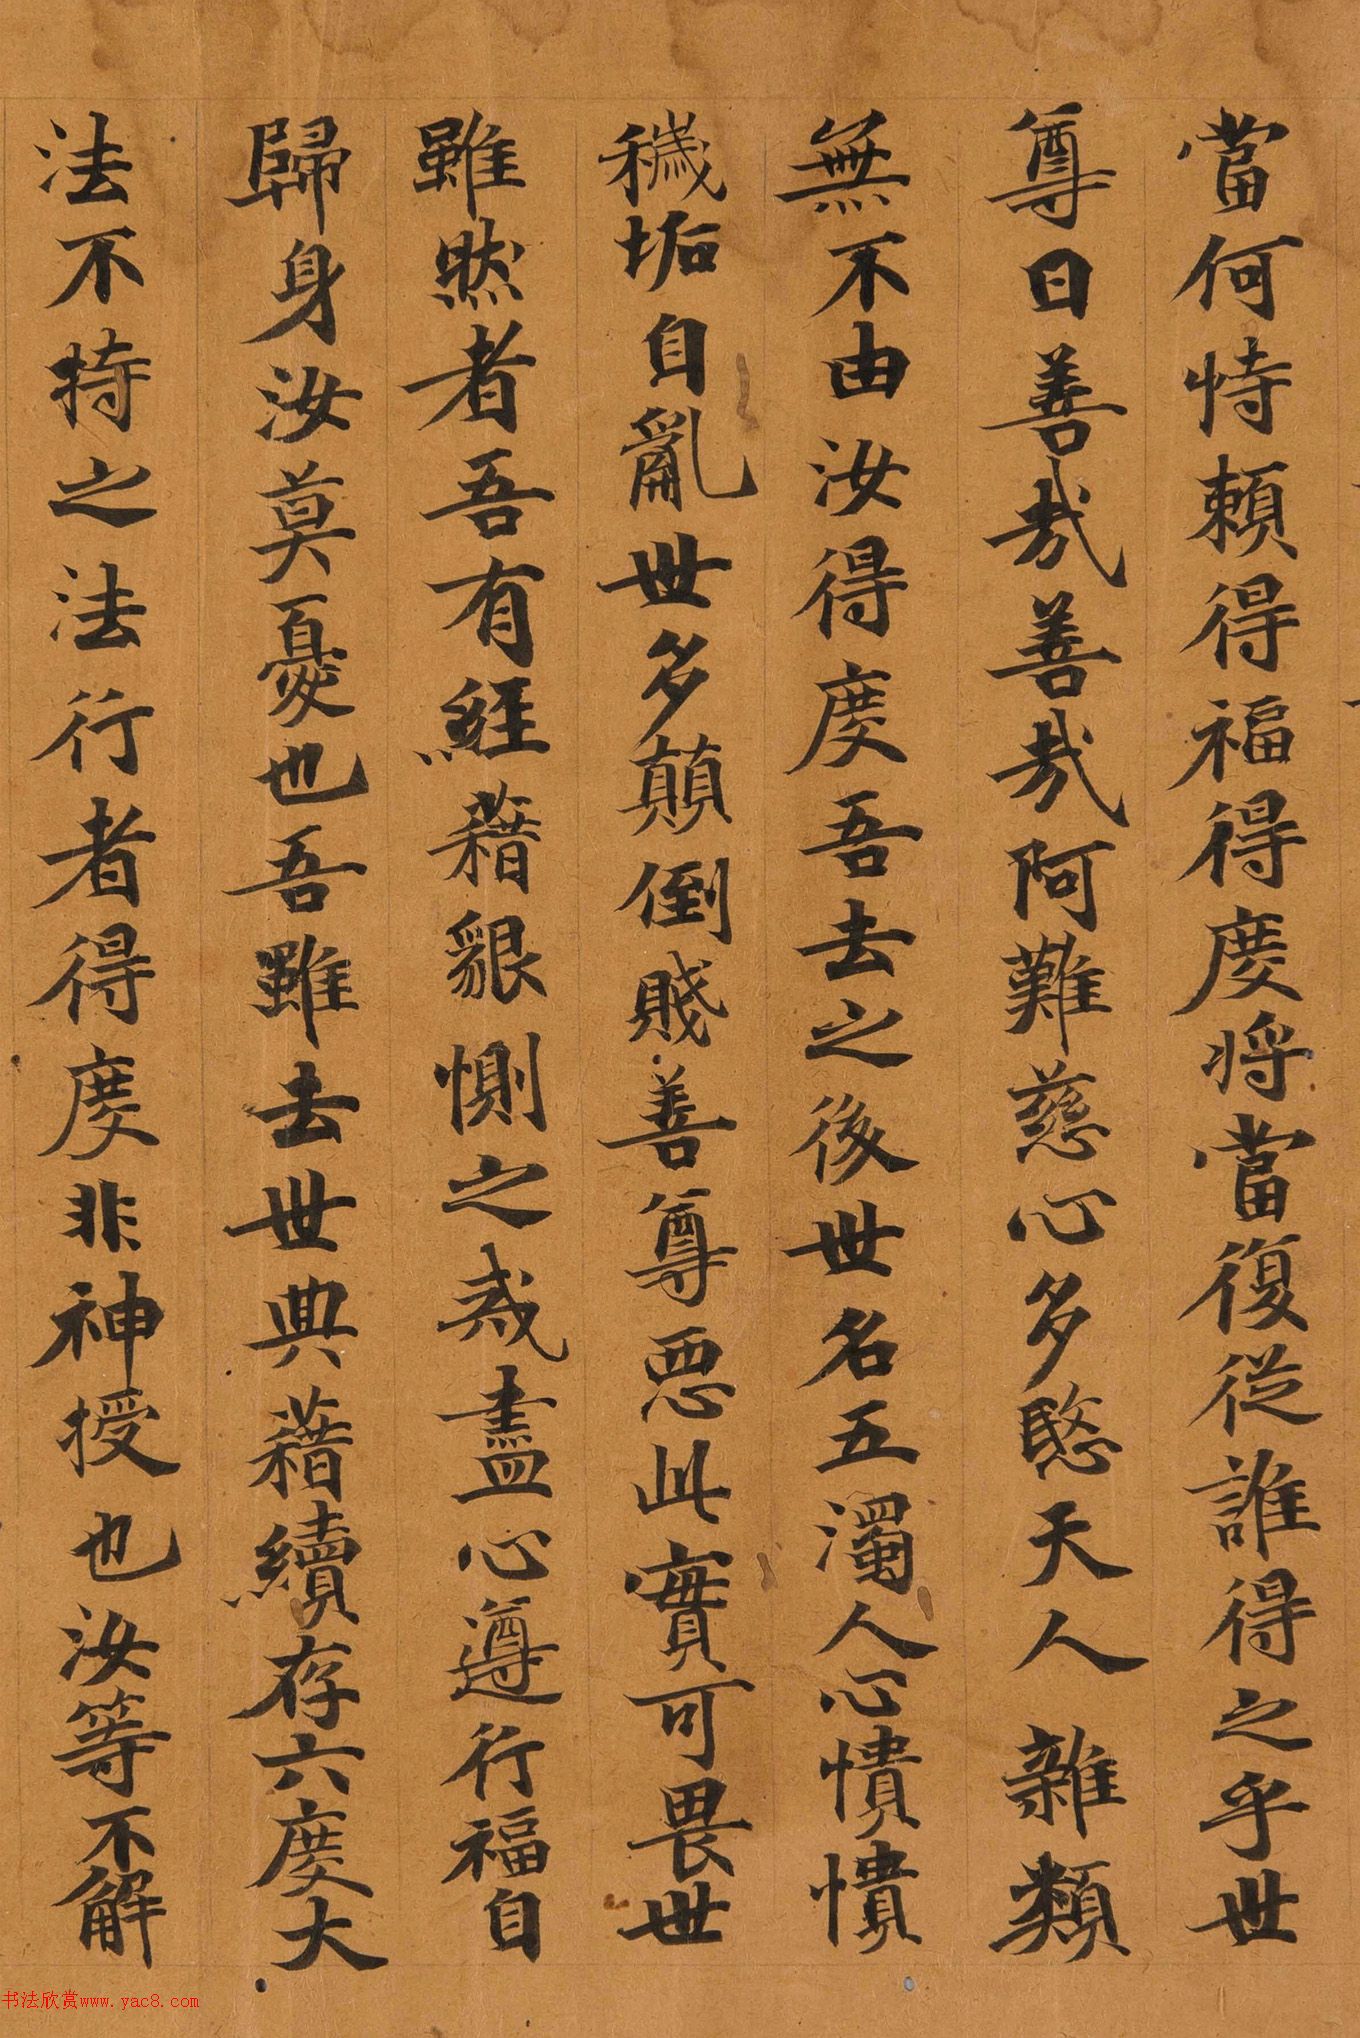 當何恃賴得福得度將當復從誰得之乎世
尊曰善哉善哉阿難慈心多愍天人雜類
無不由汝得度吾去之後世名五濁人心憒憒
穢垢自亂世多顛倒賤善尊惡此實可畏世
雖然者吾有經藉懇惻之戒盡心遵行福自
歸身汝莫憂也吾雖去世典藉續存六度大
法不持之法行者得度非神授也汝等不解
书法欣赏www.yac8.com